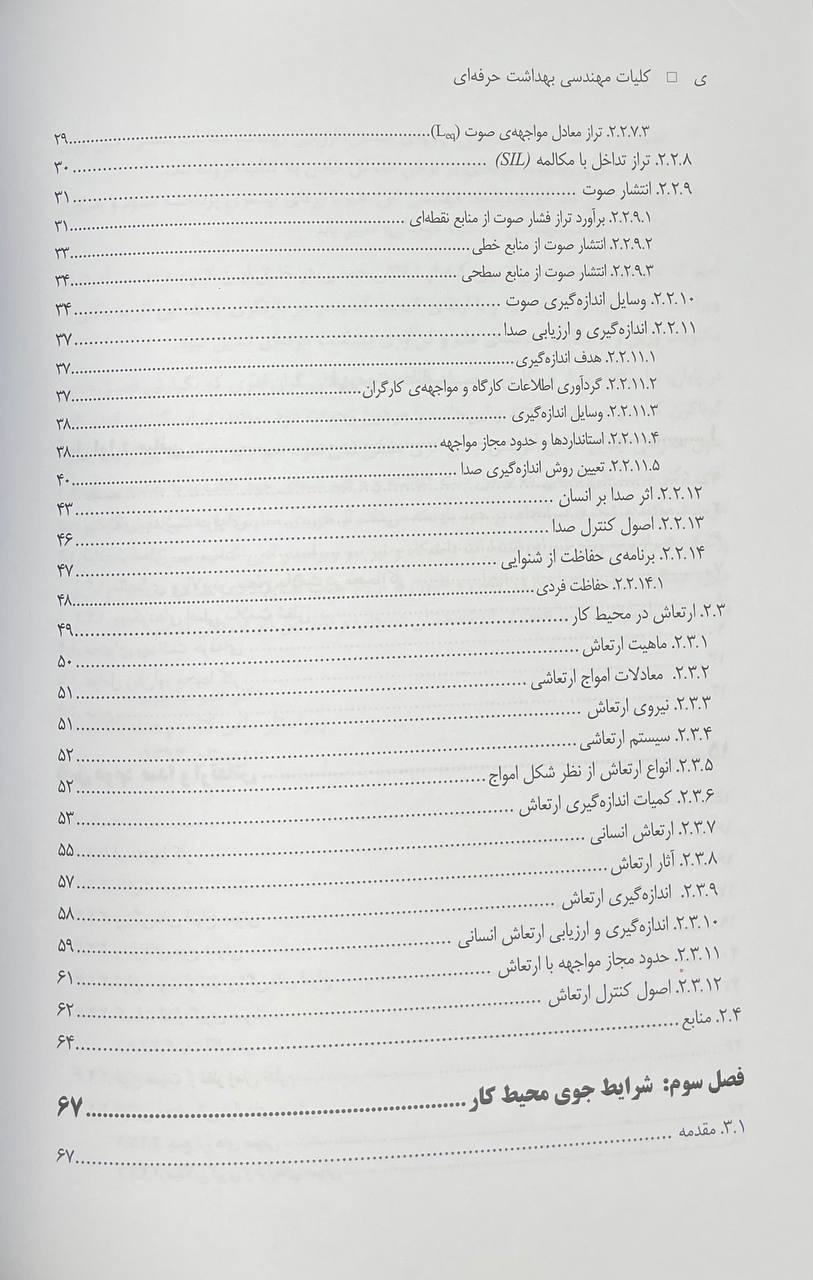 ی □ کلیات مهندسی بهداشت حرفه‌ای
۲.۲.۷.۳. تراز معادل مواجهه‌ی صوت (Leq)..........۲۹
۲.۲.۸. تراز تداخل با مکالمه (SIL) ..........۳۰
۲.۲.۹. انتشار صوت ..........۳۱
۲.۲.۹.۱. برآورد تراز فشار صوت از منابع نقطه‌ای ..........۳۱
۲.۲.۹.۲. انتشار صوت از منابع خطی..........۳۳
۲.۲.۹.۳. انتشار صوت از منابع سطحی ..........۳۴
۲.۲.۱۰. وسایل اندازه‌گیری صوت ..........۳۴
۲.۲.۱۱. اندازه‌گیری و ارزیابی صدا..........۳۷
۲.۲.۱۱.۱. هدف اندازه‌گیری..........۳۷
۲.۲.۱۱.۲. گردآوری اطلاعات کارگاه و مواجهه‌ی کارگران..........۳۷
۲.۲.۱۱.۳. وسایل اندازه‌گیری ..........۳۸
۲.۲.۱۱.۴. استانداردها و حدود مجاز مواجهه ..........۳۸
۲.۲.۱۱.۵. تعیین روش اندازه‌گیری صدا ..........۴۰
۲.۲.۱۲. اثر صدا بر انسان ..........۴۳
۲.۲.۱۳. اصول کنترل صدا ..........۴۶
۲.۲.۱۴. برنامه‌ی حفاظت از شنوایی ..........۴۷
۲.۲.۱۴.۱. حفاظت فردی ..........۴۸
۲.۳. ارتعاش در محیط کار ..........۴۹
۲.۳.۱. ماهیت ارتعاش ..........۵۰
۲.۳.۲. معادلات امواج ارتعاشی ..........۵۱
۲.۳.۳. نیروی ارتعاش ..........۵۱
۲.۳.۴. سیستم ارتعاشی ..........۵۲
۲.۳.۵. انواع ارتعاش از نظر شکل امواج ..........۵۲
۲.۳.۶. کمیات اندازه‌گیری ارتعاش ..........۵۳
۲.۳.۷. ارتعاش انسانی ..........۵۵
۲.۳.۸. آثار ارتعاش ..........۵۷
۲.۳.۹. اندازه‌گیری ارتعاش ..........۵۸
۲.۳.۱۰. اندازه‌گیری و ارزیابی ارتعاش انسانی ..........۵۹
۲.۳.۱۱. حدود مجاز مواجهه با ارتعاش ..........۶۱
۲.۳.۱۲. اصول کنترل ارتعاش ..........۶۲
۲.۴. منابع ..........۶۴
فصل سوم: شرایط جوی محیط کار ..........۶۷
۳.۱. مقدمه ..........۶۷